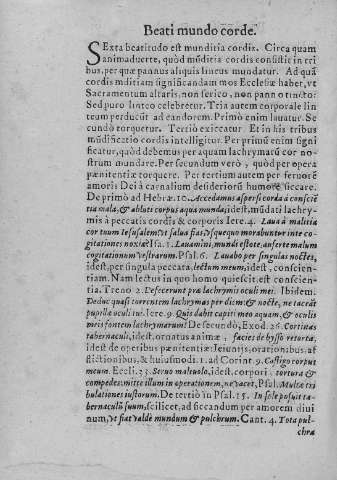 Beati mundo corde.
SExta beatitudo est munditia cordis. Circa quam
animaduerte, quòd mũditia cordis consistit in tri
bus, per quæ pannus aliquis lineus mundatur. Ad quã
cordis mditiam significandam mos Ecclesiæ habet, vt
Sacramentum altaris, non serico, non panno tincto:
Sed puro linteo celebretur. Tria autem corporale lin
teum perducũt ad candorem. Primò enim lauatur. Se
cundò torquetur. Tertiò exiccatur. Et in his tribus
mũdificatio cordis intelligitur. Per primũ enim signi
ficatur, quòd debemus per aquam lachrymarũ cor no-
strum mundare. Per secundum verò, quòd per opera
pœnitentiæ torquere. Per tertium autem per feruorẽ
amoris Dei à carnalium desideriorũ humore siccare.
De primò ad Hebræ. 10. Accedamus aspersi corda à conscie
tia mala, & abluti corpus aqua munda, idest, mũdati lachry-
mis à peccatis cordis & corporis Iere. 4. Laua à malitia
cor tuum Ierusalem: vt salua fias, vsquequo morabuntur inte co-
gitationes noxiæ? Isa. 1. Lauamini, mundi estote, auferte malum
cogitationum vestrarum. Psal. 6. Lauabo per singulas noctes,
idest, per singula peccata, lectum meum, idest, conscien-
tiam. Nam lectus in quo homo quiescit, est conscien
tia. Treno 2. Defecerunt præ lachrymis oculi mei. Ibidem.
Deduc quasi torrentem lachrymas per diem: & nocte, ne taceat
pupillæ oculi tui. Iere. 9. Quis dabit capiti meo aquam, & oculis
meis fontem lachrymarum? De secundò, Exod. 26. Cortinas
tabernaculi, idest, ornatus animæ, facies de bysso retorta,
idest de operibus pœnitentiæ, Ieiunijs, orationibus, af
flictionibus, & huiusmodi. 1. ad Corint. 9. Castigo corpus
meum. Eccli. 33. Seruo maleuolo, idest, corpori, tortura
& compedes: mitte illum in operationem, ne vacet, Psal. Multæ tri
bulationes iustorum. De tertiò in Psal. 15. In sole posuit ta-
bernaculũ suum, scilicet, ad siccandum per amorem diui
num, vt fiat valdè mundum & pulchrum. Cant. 4. Tota pul-
chra